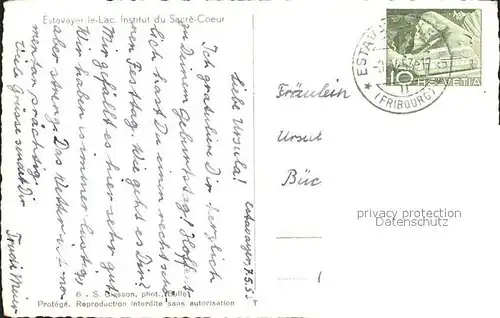 Estavayer-le-Lac. Institut du Sacré-Coeur
Estavayer, 7.5.5
Liebe Ursula!
Ich gratuliere Dir herzlich
zu Deinem Geburtstag! Hoffent-
lich hast Du einen recht schö-
nen Festtag. Wie geht es Dir?
Mir gefällt es hier sehr gut.
Wir haben es immer lustig,
aber streng. Das Wetter ist mo-
mentan prächtig.
Viele Grüsse sendet Dir
Trudi
6 - S. Glasson, phot., Bulle
Protégé. Reproduction interdite sans autorisation
T
ESTAVAY
(FRIBOURG)
10
HELVETIA
Fräulein
Ursul
Büc
privacy protection
Datenschutz